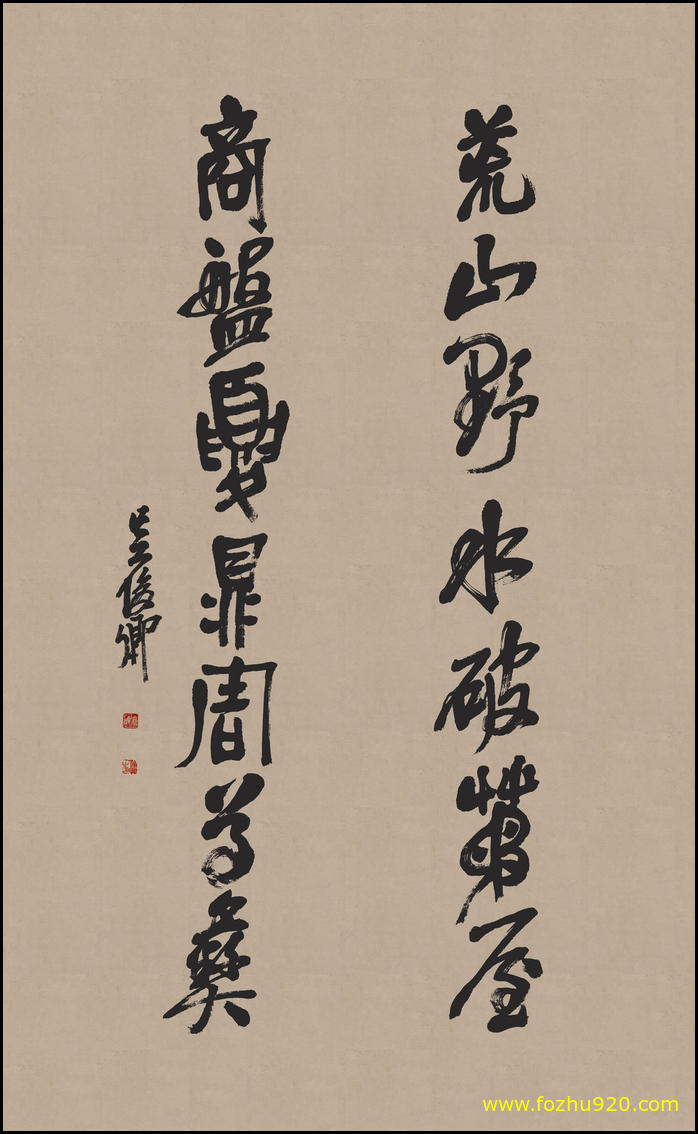 荒山野水破茅屋
商盤夏鼎周尊彝
吴俊卿
www.fozhu920.com